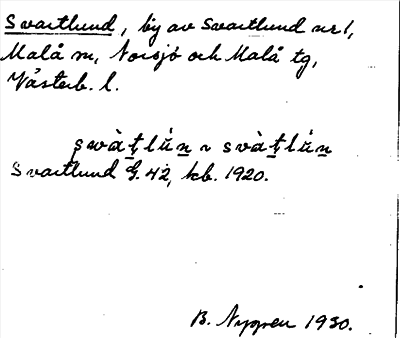 Svartlund, by av Svartlund nr 1,
Malå sn, Norsjö och Malå tg,
Västerb. l.
swàṯlúṉ ~ svàṯlúṉ
Svartlund G. 42, kb. 1920.
B. Nygren 1930.